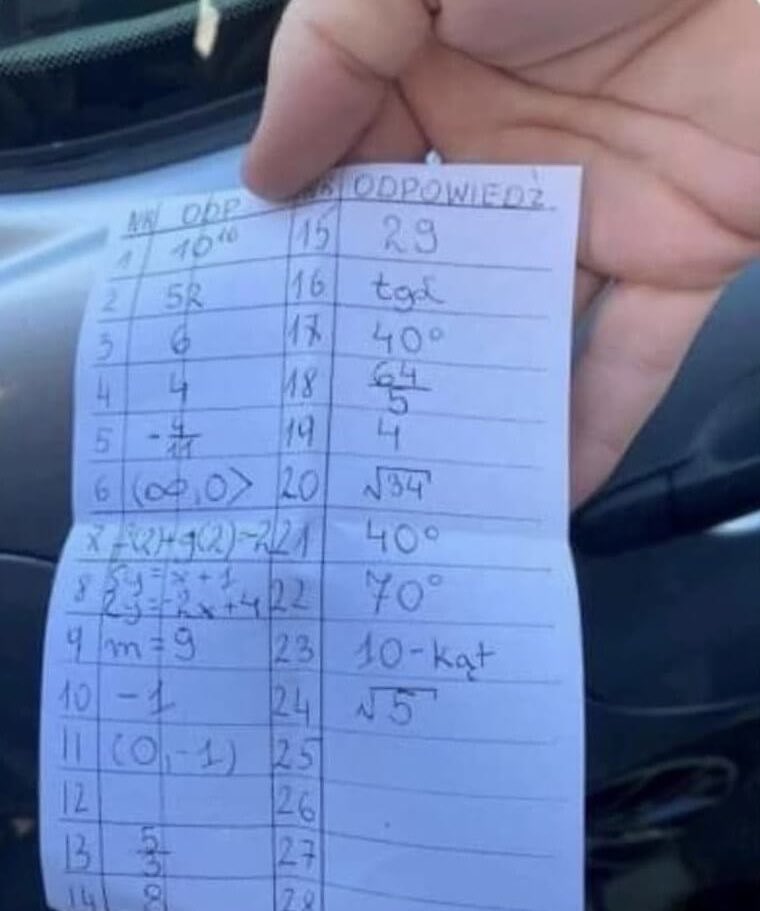 NR ODP NR ODPOWIEDŹ
1 10¹⁰ 15 29
2 52 16 tgα
3 6 17 40°
4 4 18 64/5
5 -4/11 19 4
6 (∞,0> 20 √34
21 40°
8 2y=-2x+4 22 70°
9 m=9 23 10-kąt
10 -1 24 √5
11 (0,-1) 25
12 26
13 5/3 27
14 8 28